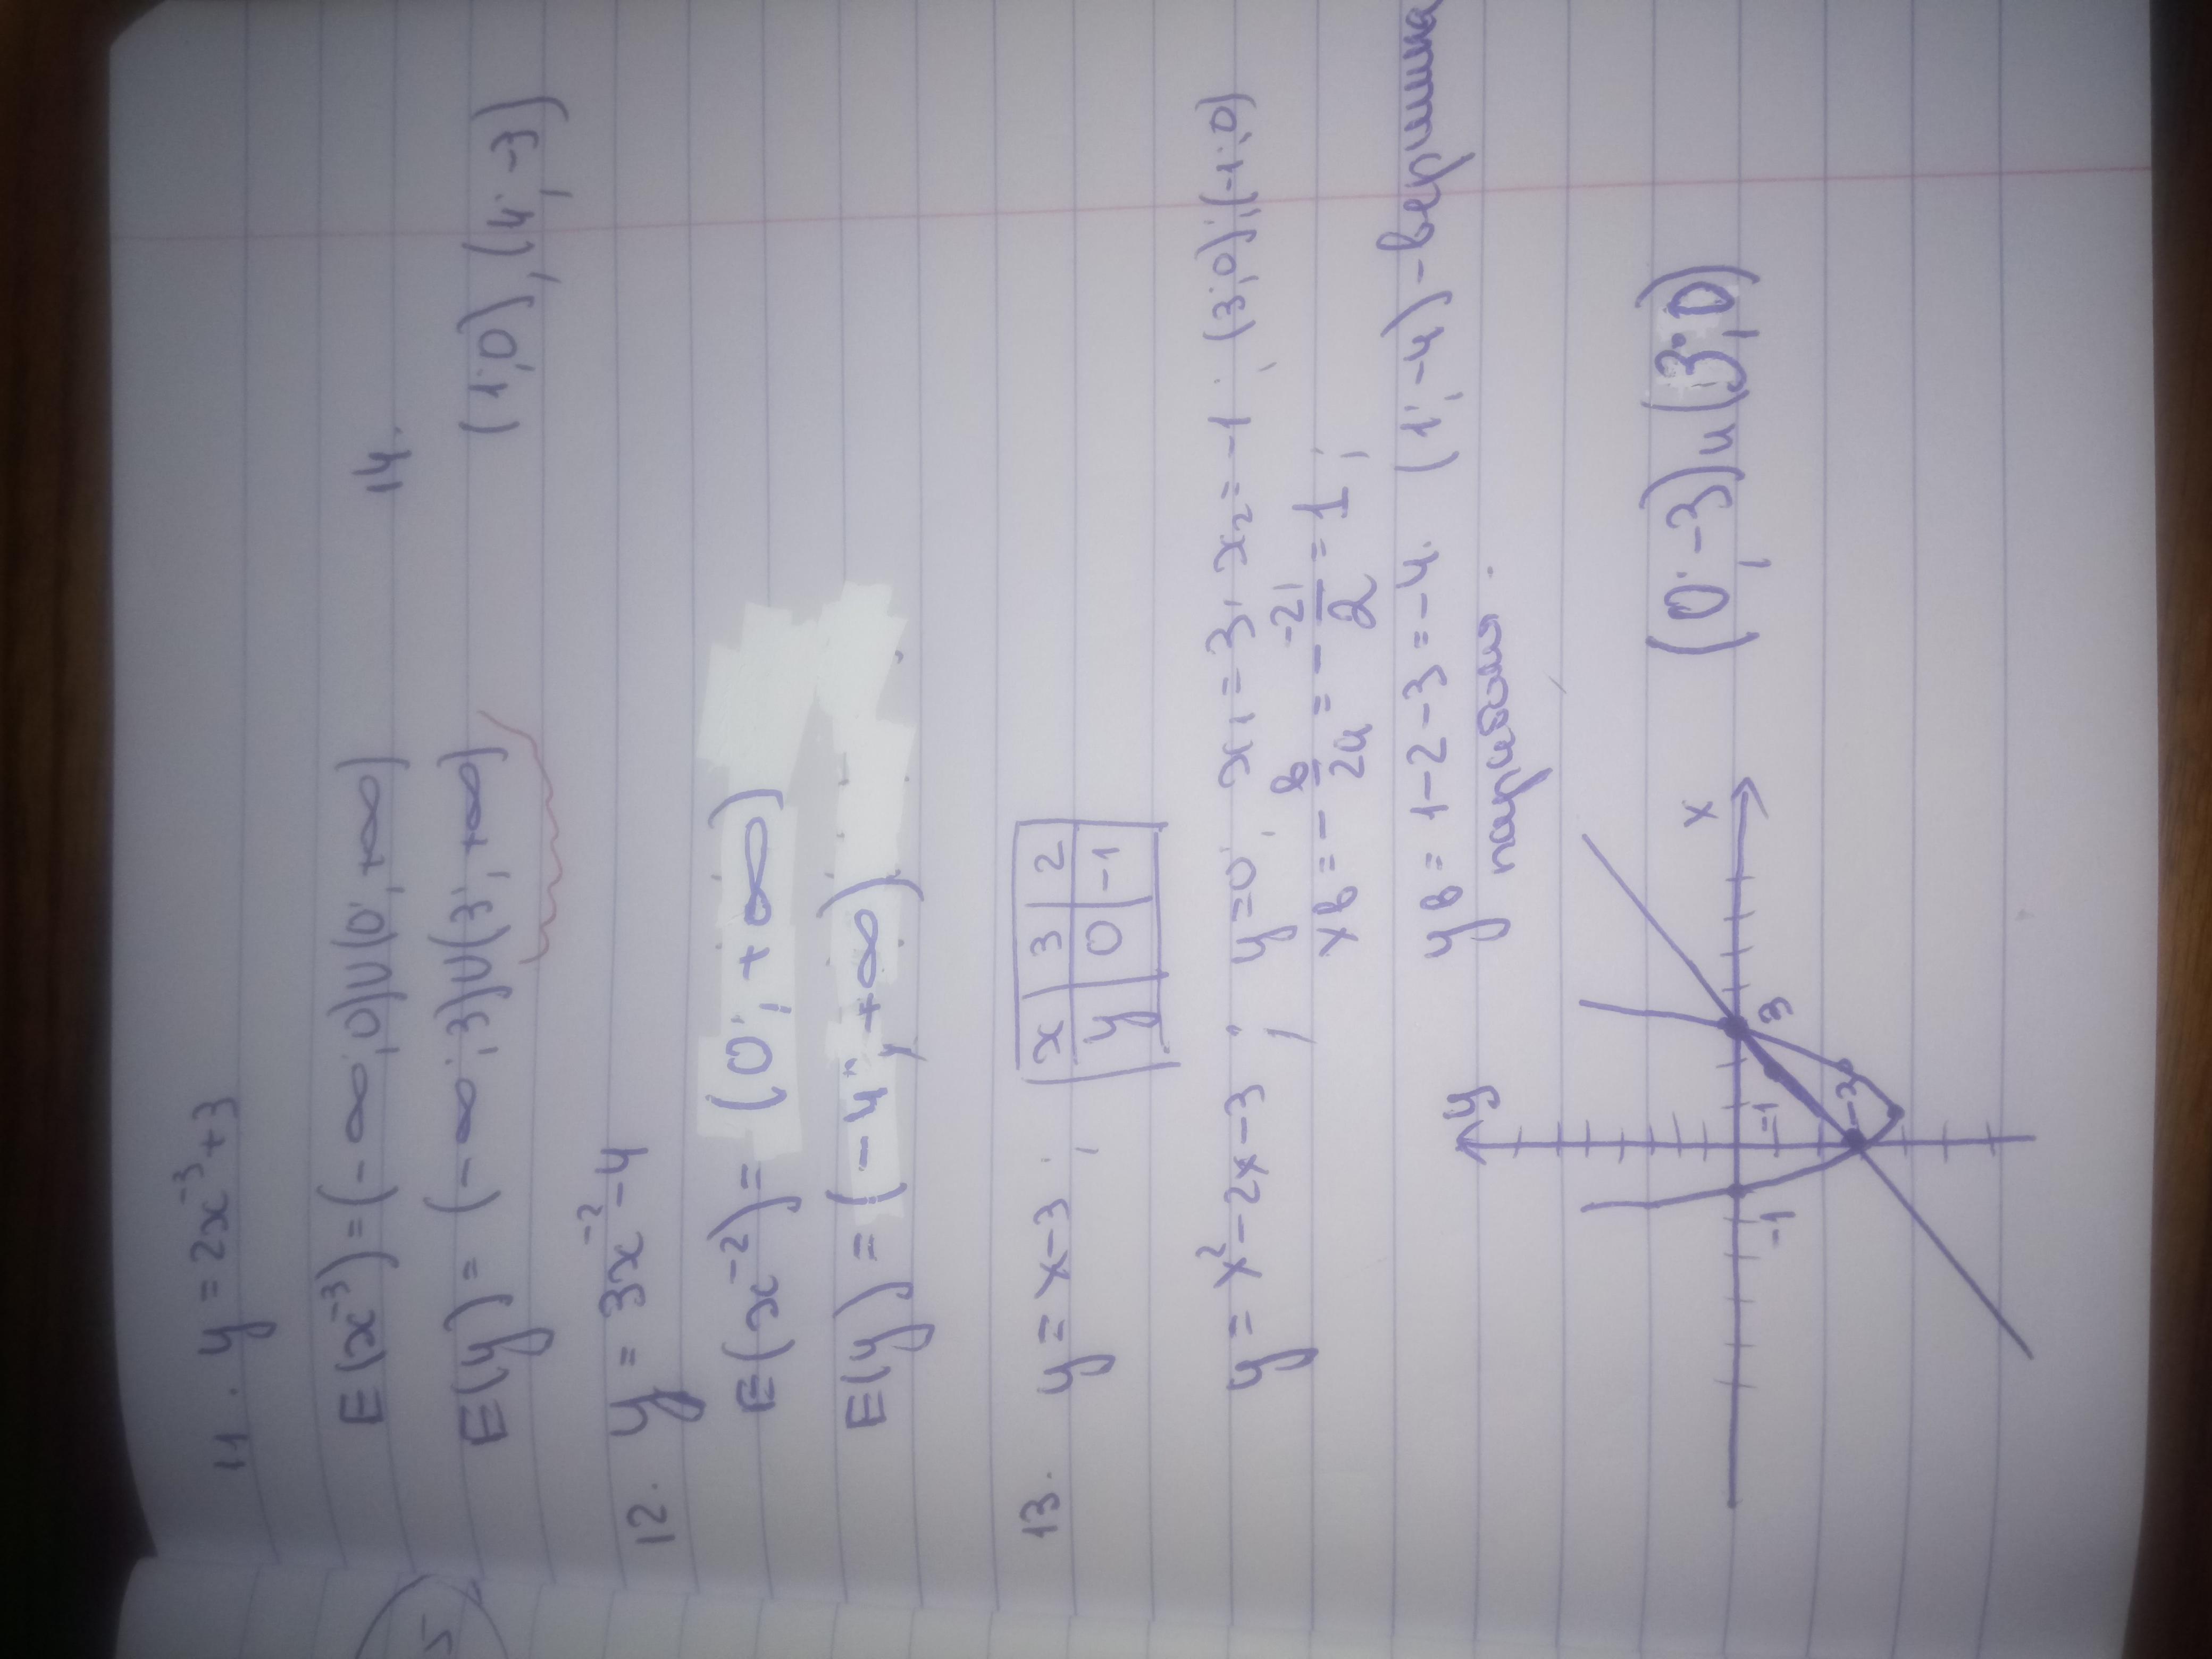 11. y = 2x⁻³+3
E(x⁻³)=(-∞;0)U(0;+∞)
14.
E(y) = (-∞;3)U(3;+∞)
(1;0), (4;-3)
12. y = 3x⁻²-4
E(x⁻²)= (0;+∞)
E(y) = (-4;+∞)
13. y = x-3 ;
x 3 2
y 0 -1
y = x²-2x-3 ; y=0; x₁=3; x₂=-1; (3;0);(-1;0)
xв = - в/2a = - -2/2 = 1;
yв = 1-2-3=-4. (1;-4) - вершина
параболы.
y
x
-1
3
-1
-3
(0;-3) и (3;0)
5